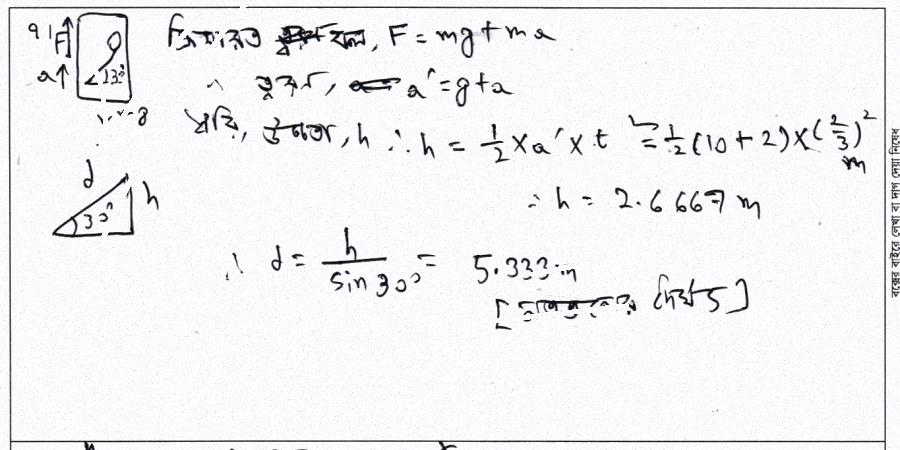 91
F
a
30°
ক্রিয়ারত বল, F = mg + ma
∴ ত্বরণ, a′ = g + a
ধরি, উচ্চতা, h ∴ h = 1/2 × a′ × t² = 1/2 (10 + 2) × (2/3)² m
d
h
30°
∴ h = 2.6667 m
∴ d = h / sin 30° = 5.333 m
[ দৈর্ঘ্য d ]
বক্সের বাইরে লেখা বা দাগ দেয়া নিষেধ